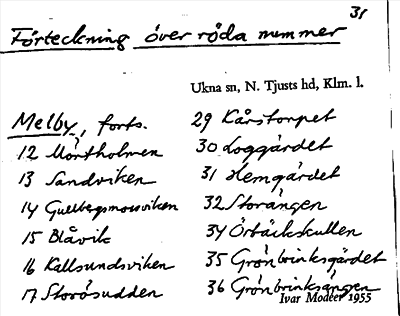 31
Förteckning över röda nummer
Ukna sn, N. Tjusts hd, Klm. l.
Melby, forts.
12 Mörtholmen
13 Sandviken
14 Gullbergsmossviken
15 Blåvik
16 Kallsundsviken
17 Storösudden
29 Kårstorpet
30 Loggärdet
31 Hemgärdet
32 Storängen
34 Örbäckskullen
35 Grönbrinksgärdet
36 Grönbrinksängen
Ivar Modéer 1955